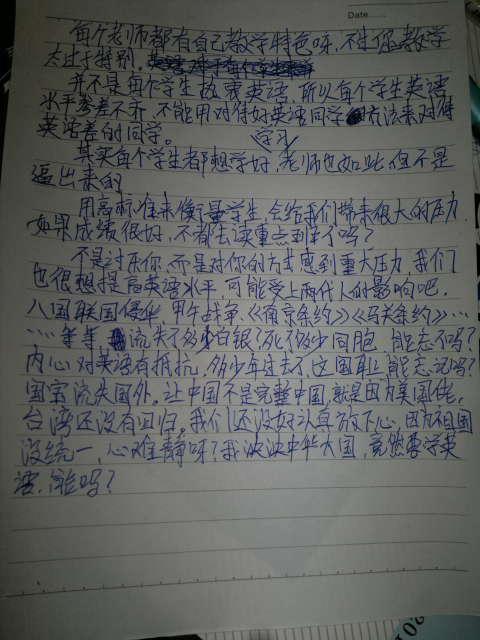 Date
每个老师都有自己教学特色呀,不过你教学
太过于特别。
并不是每个学生都爱英语,所以每个学生英语
水平参差不齐,不能用对待好英语同学方法来对待
英语差的同学。 学习
其实每个学生都想学好,老师也如此,但不是
逼出来的
用高标准来衡量学生,会给我们带来很大的压力.
如果成绩很好,不都去读重点班了吗?
不是讨厌你,而是对你的方式感到重大压力,我们
也很想提高英语水平,可能受上两代人的影响吧.
八国联国侵华 甲午战争,《南京条约》《马关条约》……
……等等 流失了多少白银?死了多少同胞,能忘不吗?
内心对英语有抵抗,多少年过去了,这国耻能忘记吗?
国宝流失国外。让中国不是完整中国,就是因为美国佬,
台湾还没有回归。我们还没好认真放下心,因为祖国
没统一 心难静呀?我泱泱中华大国,竟然要学英
语,能吗?